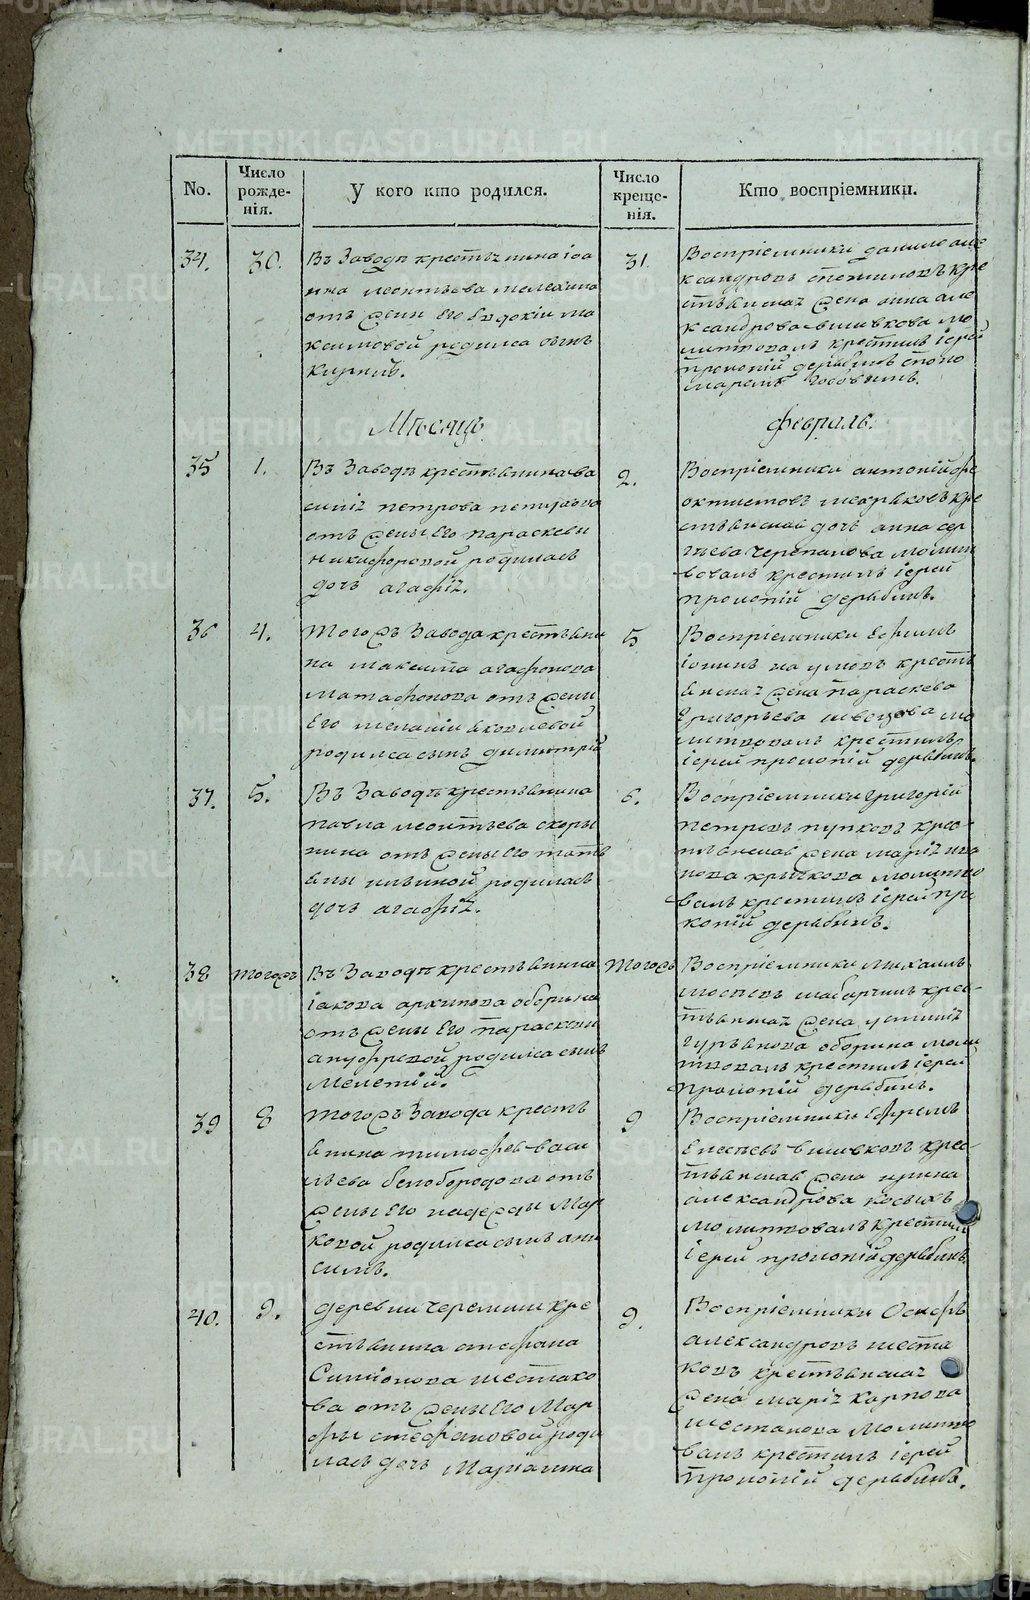 No.
Число рожде-нія.
У кого кто родился.
Число креще-нія.
Кто воспріемники.
34.
30.
Въ Заводѣ крестьянина Іоа
нна леонтьева мелехина
отъ жены Его Евдокіи ма
ксимовой родился сынъ
кирилъ.
31.
Воспріемники данило але
ксандровъ кре
стьянская жена анна але
ксандрова вишвкова мо
литвовалъ крестилъ іерей
прокопій дерябинъ с поно
маремъ
Мѣсяцъ
февраль.
35
1.
Въ Заводѣ крестьянина ва
силія петрова
отъ жены Его параскевы
никифоровой родилась
дочь агафія.
2.
Воспріемники антоній фе
октистовъ кре
стьянская дочь анна сер
гѣева черепанова молит
вовалъ крестилъ іерей
прокопій дерябинъ.
36
4.
Тогожъ Завода крестьяни
на максима агафонова
матафонова отъ жены
Его меланіи яковлевой
родился сынъ димитрій
5
Воспріемники Ефимъ
іонинъ наумовъ кресть
янская жена параскева
Григорьева швецова мо
литвовалъ крестилъ
іерей прокопій дерябинъ.
37.
5.
Въ Заводѣ крестьянина
павла леонтьева скоры
нина отъ жены Его тать
яны ильиной родилась
дочь агафія.
6.
Воспріемники григорій
петровъ пупковъ крес-
тьянская жена марія ива
нова крычкова молитво
валъ крестилъ іерей про
копій дерябинъ.
38
Тогожъ
Въ Заводѣ крестьянина
іакова архипова оборина
отъ жены Его параскевы
ануфревой родился сынъ
мелетій.
Тогожъ
Воспріемники михаилъ
крес-
тьянская жена устинія
гурьянова оборина моли
твовалъ крестилъ іерей
прокопій дерябинъ.
39
8
Тогожъ Завода кресть
янина тимофея васи
льева белобородова отъ
жены Его надежды мар
ковой родился сынъ ани
симъ.
9
Воспріемники Ефремъ
Елисѣевъ вишвковъ крес-
тьянская жена ирина
александрова косыхъ
молитвовалъ крестилъ
іерей прокопій дерябинъ.
40.
9.
деревни черемши кре
стьянина стефана
Симіонова шестако
ва отъ жены Его мар
фы стефановой роди
лась дочь маріамна
9.
Воспріемники Осифъ
александровъ шеста
ковъ крестьянская
жена марія карпова
шестакова молитво
валъ крестилъ іерей
прокопій дерябинъ.
METRIKI.GASO-URAL.RU